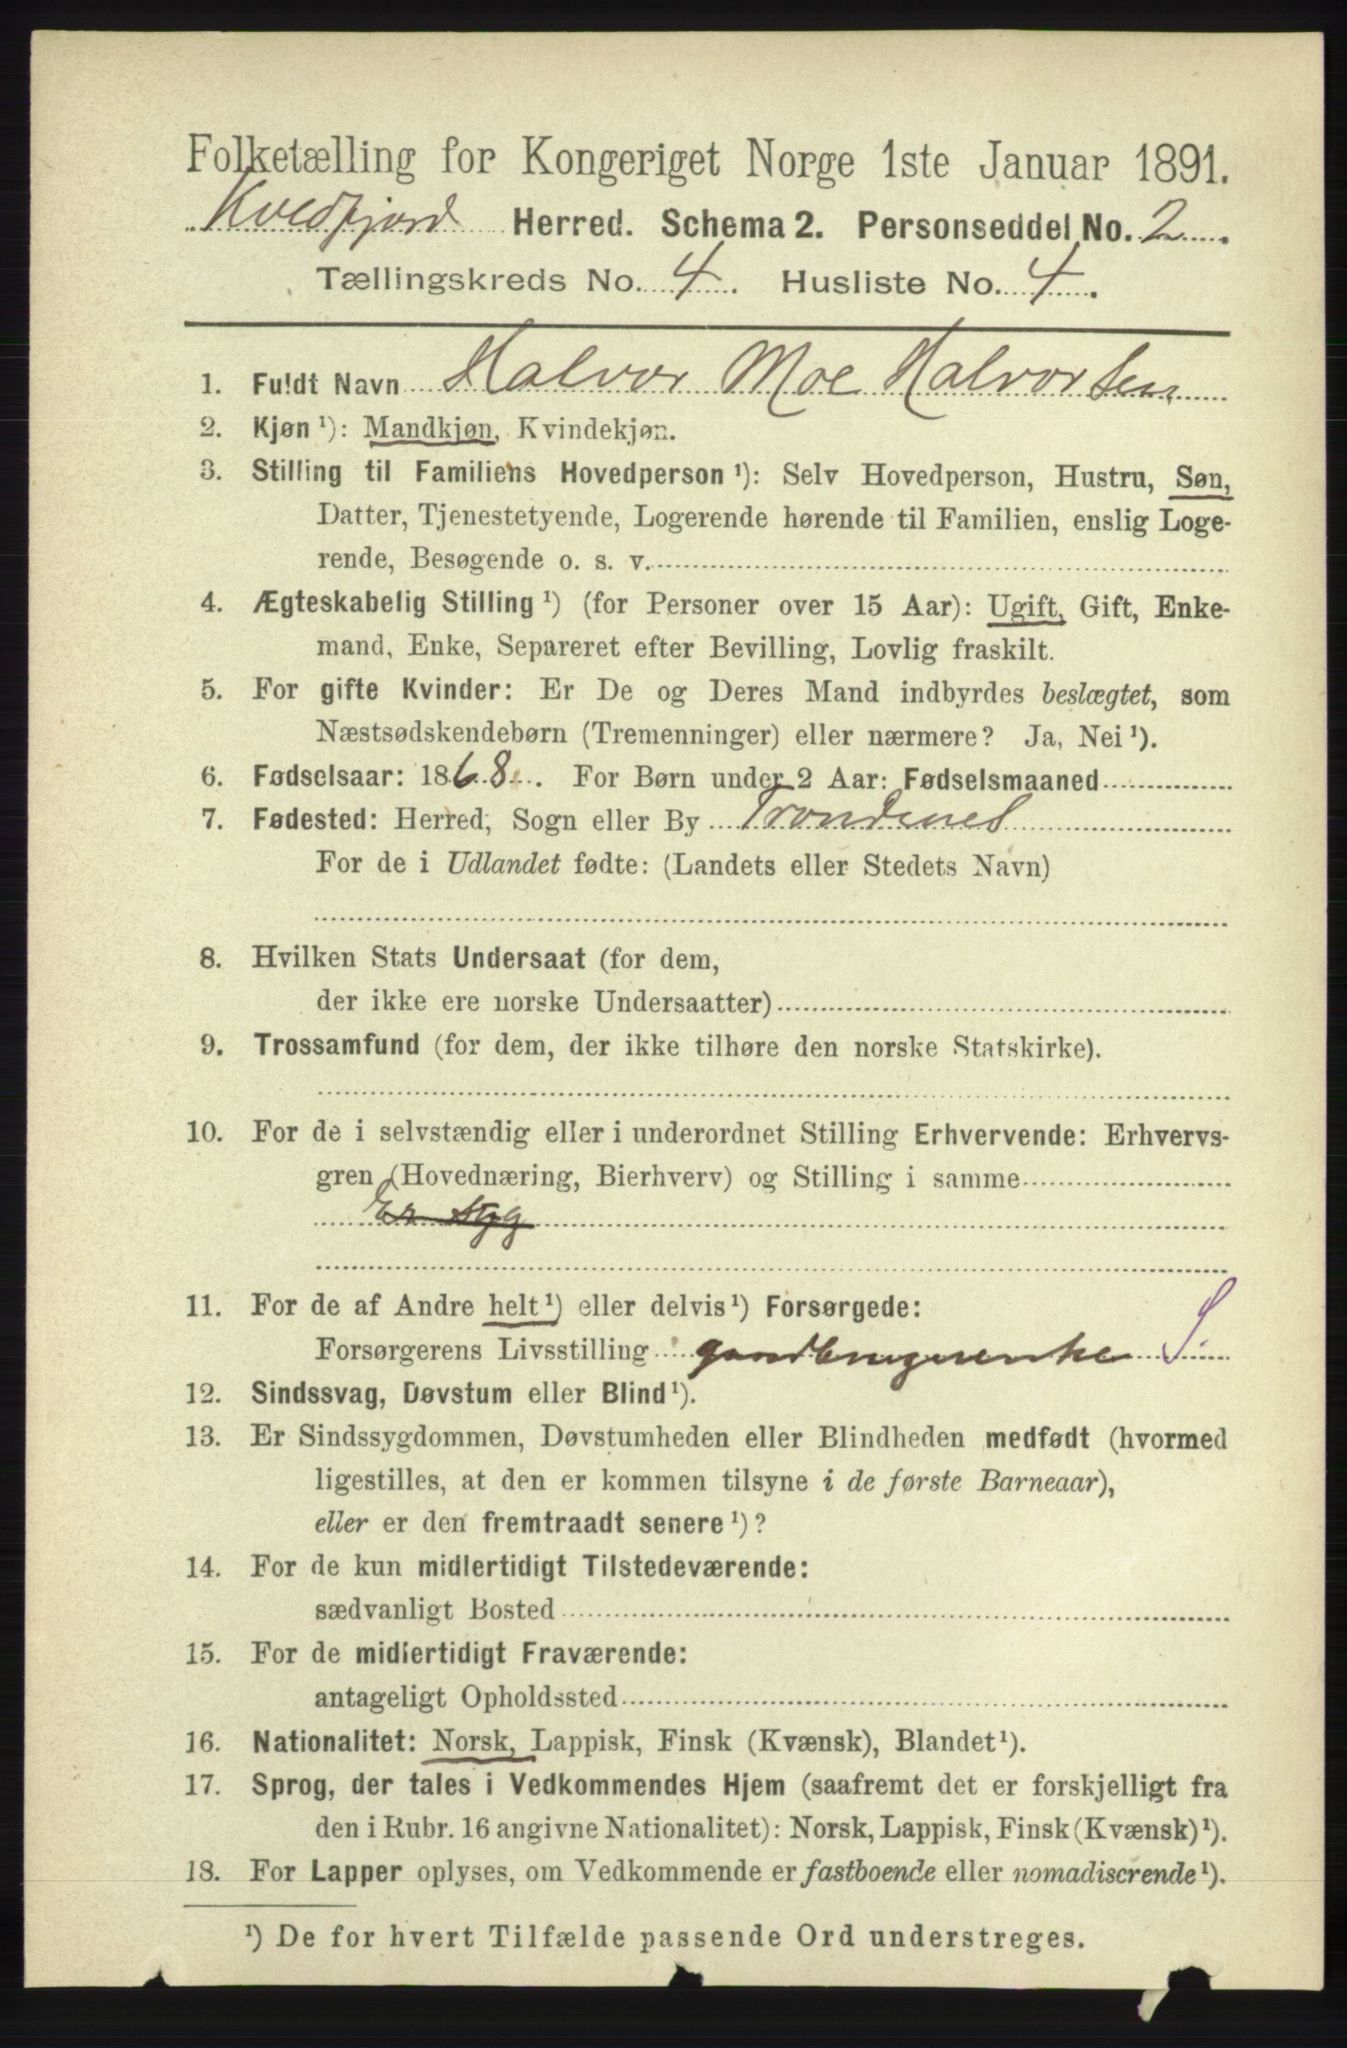 Folketælling for Kongeriget Norge 1ste Januar 1891.
Kvedfjord Herred. Schema 2. Personseddel No. 2
Tællingskreds No. 4. Husliste No. 4.
1. Fuldt Navn Halvor Moe Halvorsen
2. Kjøn ¹): Mandkjøn, Kvindekjøn.
3. Stilling til Familiens Hovedperson ¹): Selv Hovedperson, Hustru, Søn,
Datter, Tjenestetyende, Logerende hørende til Familien, enslig Loge-
rende, Besøgende o. s. v.
4. Ægteskabelig Stilling ¹) (for Personer over 15 Aar): Ugift, Gift, Enke-
mand, Enke, Separeret efter Bevilling, Lovlig fraskilt.
5. For gifte Kvinder: Er De og Deres Mand indbyrdes beslægtet, som
Næstsødskendebørn (Tremenninger) eller nærmere? Ja, Nei ¹).
6. Fødselsaar: 1868. For Børn under 2 Aar: Fødselsmaaned
7. Fødested: Herred, Sogn eller By Trondenes
For de i Udlandet fødte: (Landets eller Stedets Navn)
8. Hvilken Stats Undersaat (for dem,
der ikke ere norske Undersaatter)
9. Trossamfund (for dem, der ikke tilhøre den norske Statskirke).
10. For de i selvstændig eller i underordnet Stilling Erhvervende: Erhvervs-
gren (Hovednæring, Bierhverv) og Stilling i samme
Er syg
11. For de af Andre helt ¹) eller delvis ¹) Forsørgede:
Forsørgerens Livsstilling gaardbrugerenke S.
12. Sindssvag, Døvstum eller Blind ¹).
13. Er Sindssygdommen, Døvstumheden eller Blindheden medfødt (hvormed
ligestilles, at den er kommen tilsyne i de første Barneaar),
eller er den fremtraadt senere ¹)?
14. For de kun midlertidigt Tilstedeværende:
sædvanligt Bosted
15. For de midlertidigt Fraværende:
antageligt Opholdssted
16. Nationalitet: Norsk, Lappisk, Finsk (Kvænsk), Blandet ¹).
17. Sprog, der tales i Vedkommendes Hjem (saafremt det er forskjelligt fra
den i Rubr. 16 angivne Nationalitet): Norsk, Lappisk, Finsk (Kvænsk) ¹).
18. For Lapper oplyses, om Vedkommende er fastboende eller nomadiserende ¹).
¹) De for hvert Tilfælde passende Ord understreges.